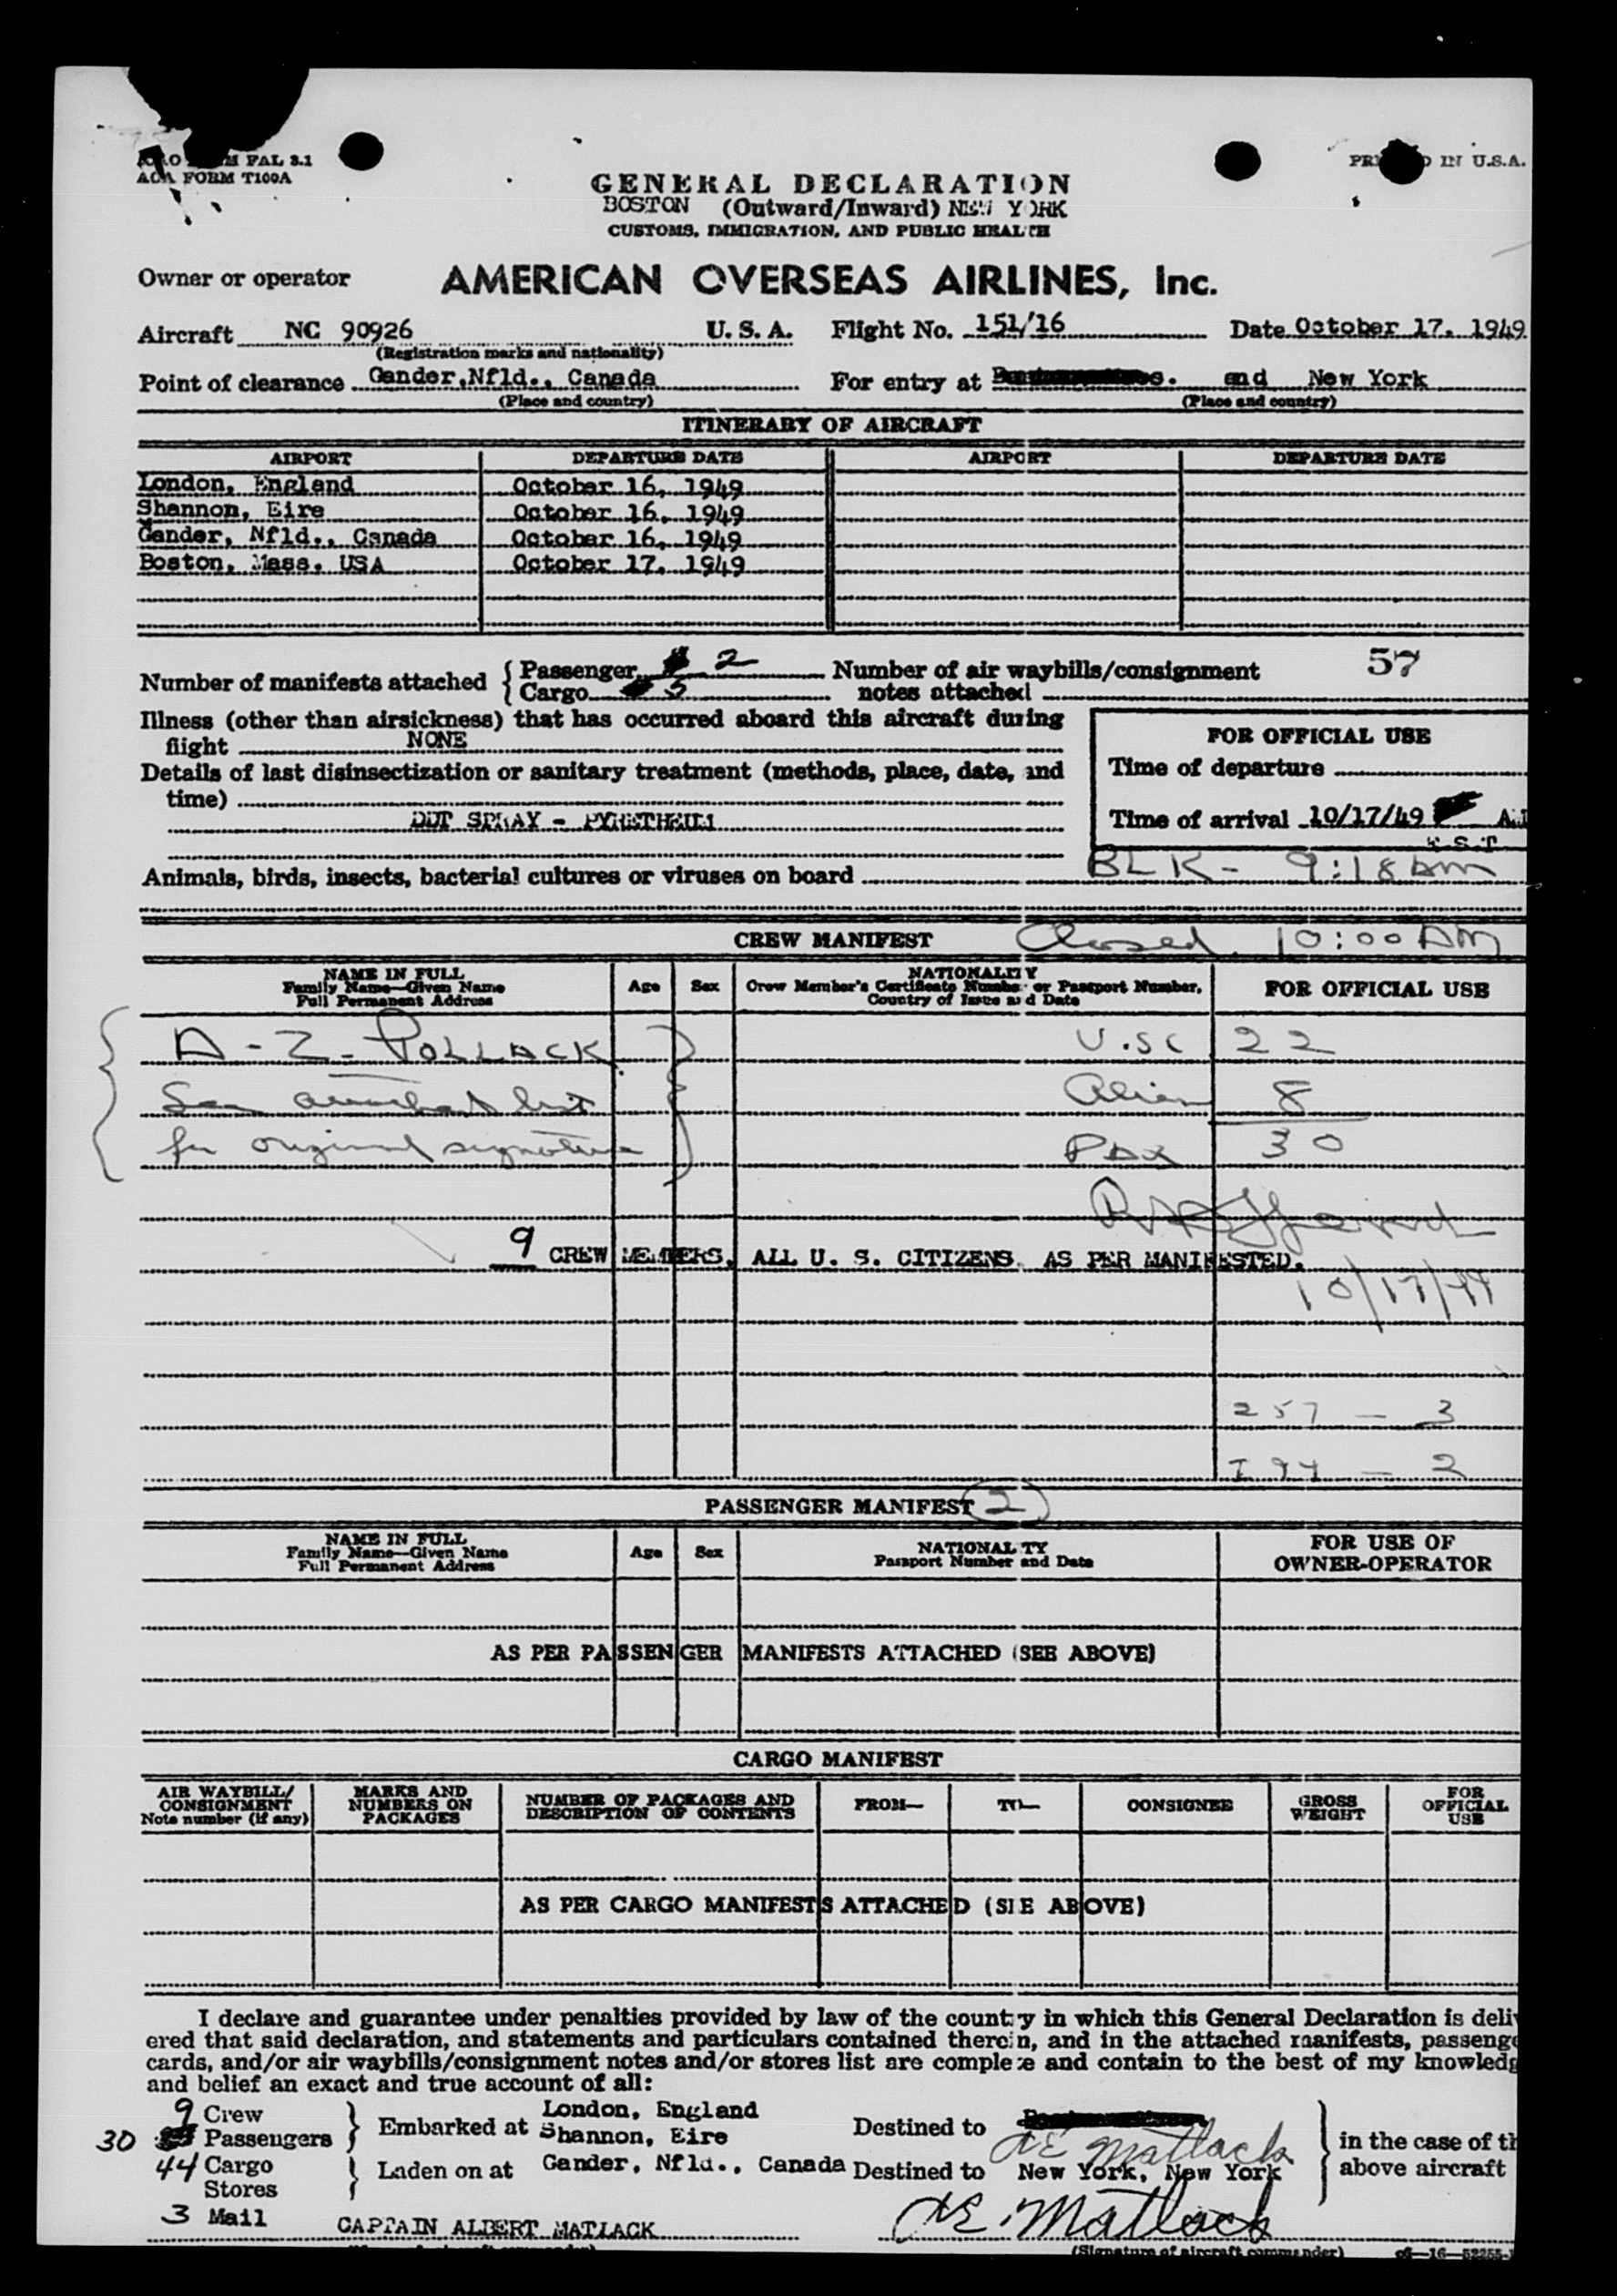 FAL 3.1
AOA FORM T100A
IN U.S.A.
GENERAL DECLARATION
BOSTON (Outward/Inward) NEW YORK
CUSTOMS, IMMIGRATION, AND PUBLIC HEALTH
Owner or operator AMERICAN OVERSEAS AIRLINES, Inc.
Aircraft NC 90926 U. S. A. Flight No. 151/16 Date October 17, 1949
(Registration marks and nationality)
Point of clearance Gander, Nfld., Canada For entry at and New York
(Place and country) (Place and country)
ITINERARY OF AIRCRAFT
AIRPORT DEPARTURE DATE AIRPORT DEPARTURE DATE
London, England October 16, 1949
Shannon, Eire October 16, 1949
Gander, Nfld., Canada October 16, 1949
Boston, Mass. USA October 17, 1949
Number of manifests attached { Passenger 2 Number of air waybills/consignment 57
{ Cargo 5 notes attached
Illness (other than airsickness) that has occurred aboard this aircraft during
flight NONE
Details of last disinsectization or sanitary treatment (methods, place, date, and
time)
DDT SPRAY - PYRETHEUM
FOR OFFICIAL USE
Time of departure
Time of arrival 10/17/49
E S T
BLK - 9:18 AM
Animals, birds, insects, bacterial cultures or viruses on board
CREW MANIFEST Closed 10:00 AM
NAME IN FULL
Family Name—Given Name
Full Permanent Address
Age Sex
NATIONALITY
Crew Member's Certificate Number or Passport Number,
Country of Issue and Date
FOR OFFICIAL USE
A-Z- POLLACK U.SC 22
See attached list Alien 8
for original signature PAX 30
9 CREW MEMBERS, ALL U. S. CITIZENS, AS PER MANIFESTED.
10/17/49
257 — 3
I 94 — 2
PASSENGER MANIFEST 2
NAME IN FULL
Family Name—Given Name
Full Permanent Address
Age Sex
NATIONALITY
Passport Number and Date
FOR USE OF
OWNER-OPERATOR
AS PER PASSENGER MANIFESTS ATTACHED (SEE ABOVE)
CARGO MANIFEST
AIR WAYBILL/
CONSIGNMENT
Note number (if any)
MARKS AND
NUMBERS ON
PACKAGES
NUMBER OF PACKAGES AND
DESCRIPTION OF CONTENTS
FROM— TO— CONSIGNEE
GROSS
WEIGHT
FOR
OFFICIAL
USE
AS PER CARGO MANIFESTS ATTACHED (SEE ABOVE)
I declare and guarantee under penalties provided by law of the country in which this General Declaration is deliv
ered that said declaration, and statements and particulars contained therein, and in the attached manifests, passenge
cards, and/or air waybills/consignment notes and/or stores list are complete and contain to the best of my knowledg
and belief an exact and true account of all:
9 Crew
30 Passengers
Embarked at London, England
Shannon, Eire
Destined to
A E Matlack
44 Cargo
Stores
Laden on at Gander, Nfld., Canada Destined to New York, New York
in the case of th
above aircraft
3 Mail
CAPTAIN ALBERT MATLACK
AE. Matlack
(Signature of aircraft commander)